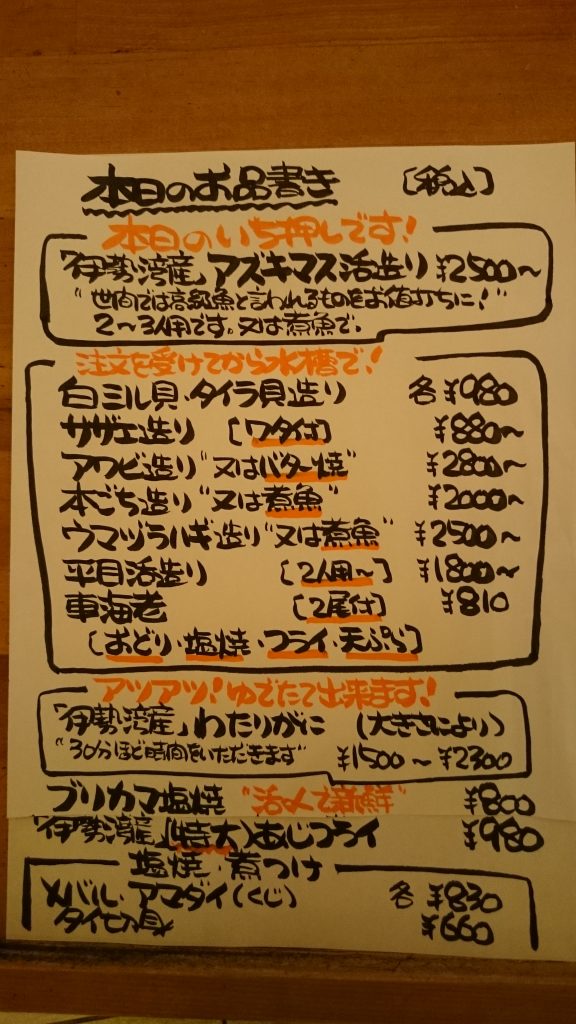 本日のお品書き [税込]
本日のいち押しです!
「伊勢湾産」アズキマス活造り ¥2500~
"世間では高級魚と言われるものをお値打ちに!"
2~3人用です。又は煮魚で。
注文を受けてから水槽で!
白ミル貝・タイラ貝造り 各¥980
サザエ造り [ワタ付] ¥880~
アワビ造り"又はバター焼" ¥2800~
本ごち造り"又は煮魚" ¥2000~
ウマヅラハギ造り"又は煮魚" ¥2500~
平目活造り [2人用~] ¥1800~
車海老 [2尾付] ¥810
[おどり・塩焼・フライ・天ぷら]
アツアツ!ゆでたて出来ます!
「伊勢湾産」わたりがに (大きさにより)
"30分ほど時間をいただきます" ¥1500~¥2300
ブリカマ塩焼 "活〆で新鮮" ¥800
「伊勢湾産」(特大)あじフライ ¥980
塩焼・煮つけ
メバル・アマダイ(くじ) 各 ¥830
タイ切身 ¥660